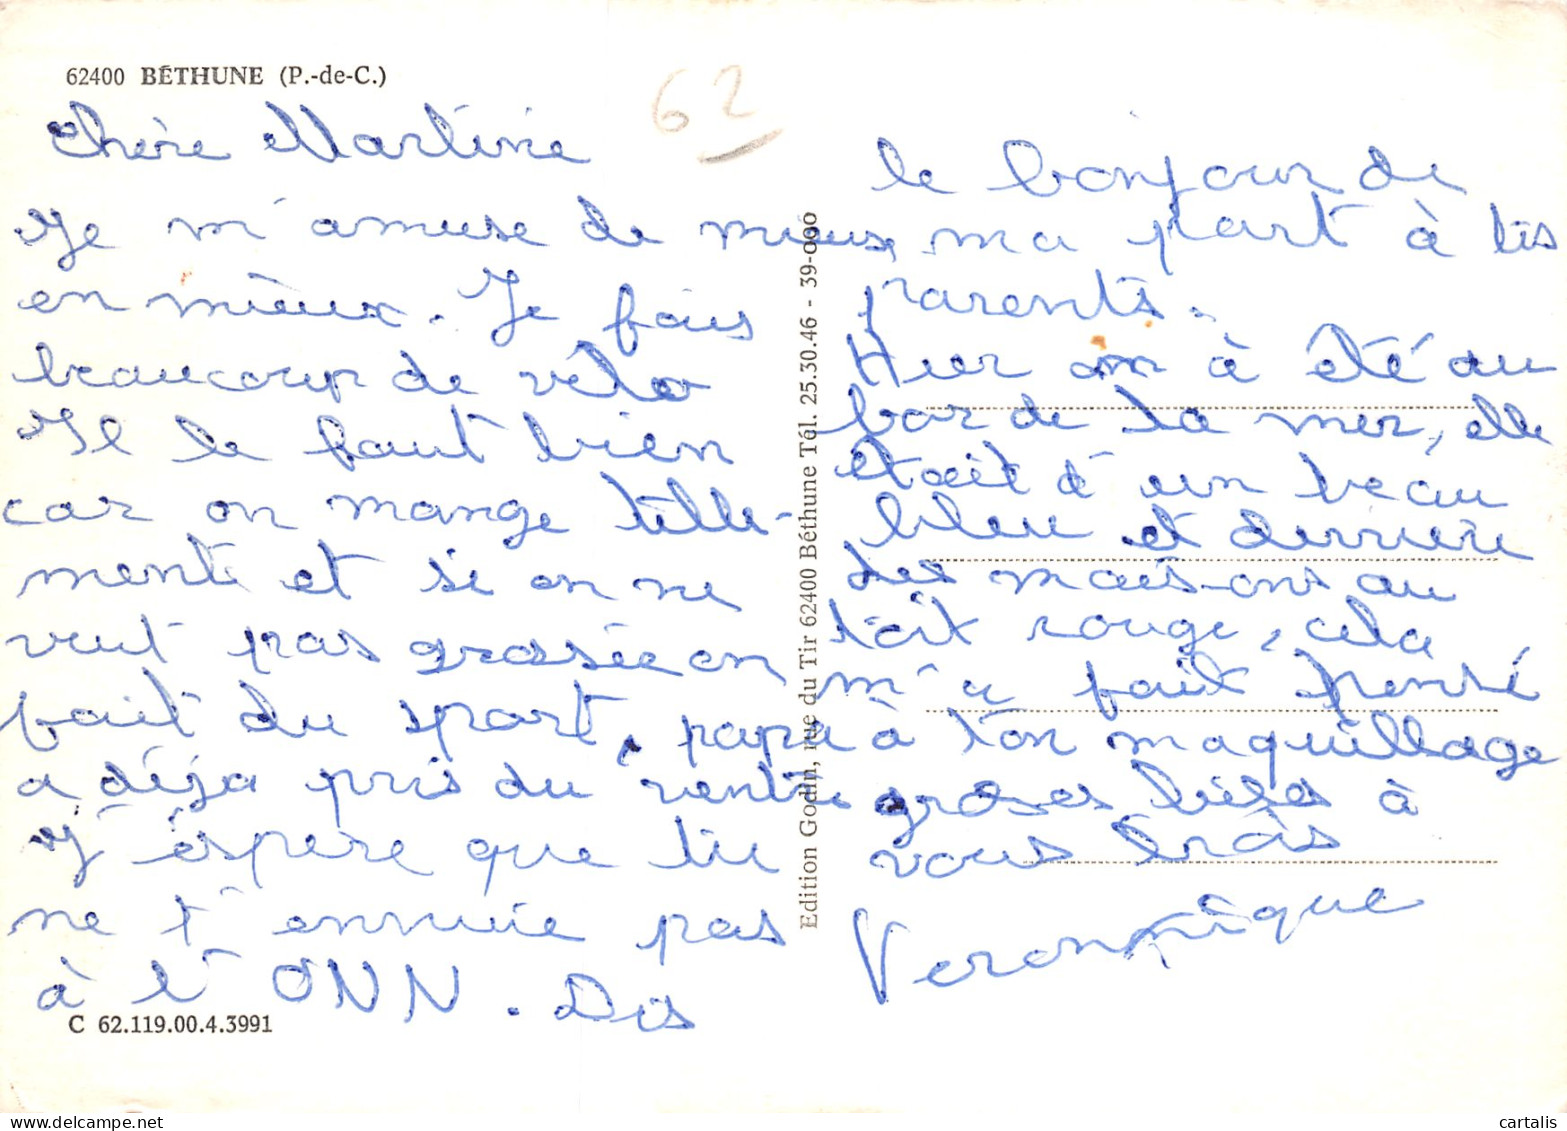 62400 BÉTHUNE (P.-de-C.)
62
Chère Martine
Je m'amuse de mieux
en mieux. Je fais
beaucoup de vélo
Il le faut bien
car on mange telle-
ment et si on ne
veut pas grossie on
fait du sport, papa
a déja pris du ventre
J'éspere que tu
ne t'ennuie pas
à l'ONN. Dis
C 62.119.00.4.3991
Edition Godin, rue du Tir 62400 Béthune Tél. 25.30.46 - 39-000
le bonjour de
ma part à tes
parents.
Hier on à été au
bar de la mer, elle
était d'un beau
bleu et derriere
des maisons au
toit rouge, cela
m'a fait pensé
à ton maquillage
groses bises à
vous trois
Veronnique
www.delcampe.net
cartalis